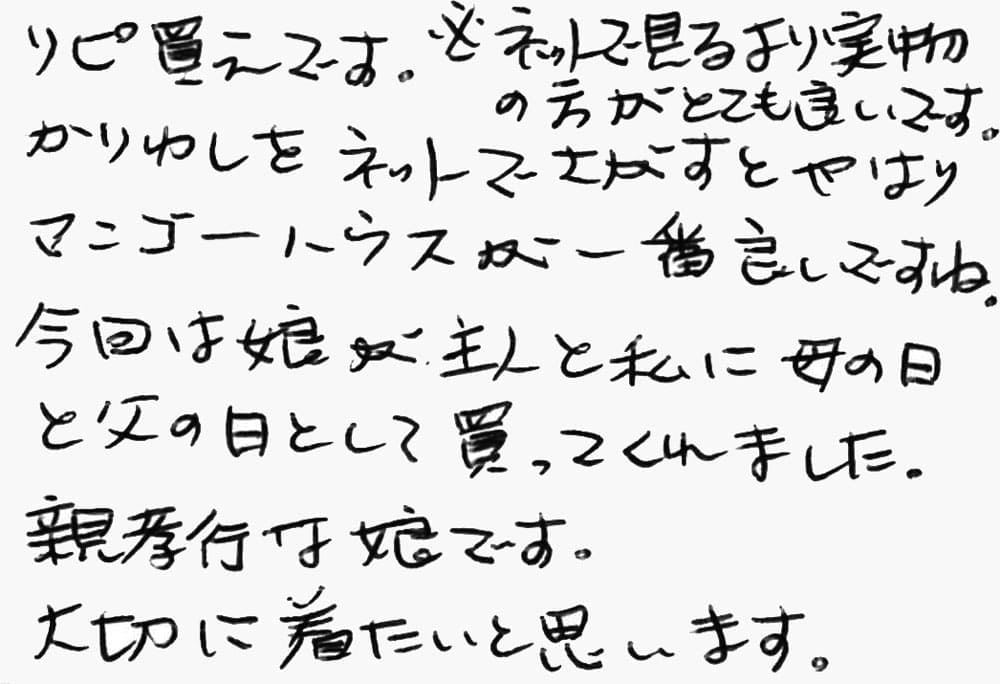 リピ買えです。※ネットで見るより実物
の方がとても良いです。
かりゆしをネットでさがすとやはり
マンゴーハウスが一番良いですね。
今回は娘が主人と私に母の日
と父の日として買ってくれました。
親孝行な娘です。
大切に着たいと思います。